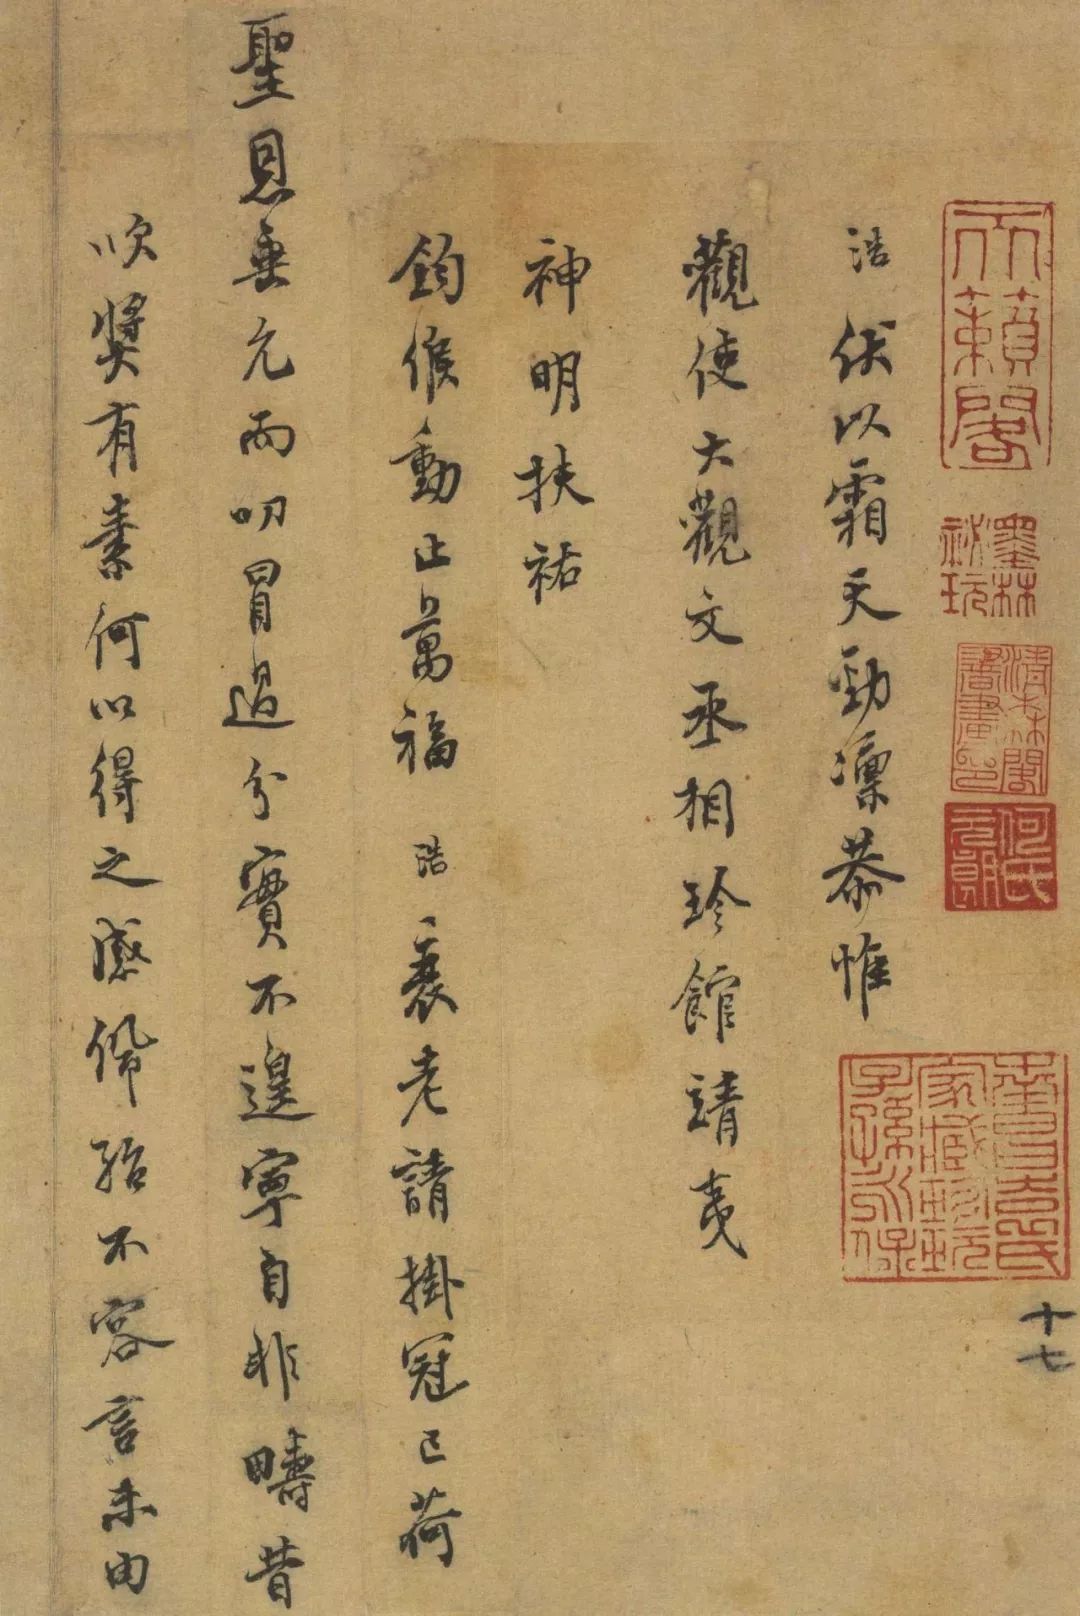 天籟閣
墨林祕玩
清森閣書畫印
何氏元朗
家藏珍玩
子孫永保
十七
浩伏以霜天勁凜恭惟
觀使大觀文丞相珍館靖夷
神明扶祐
鈞候動止萬福浩衰老請掛冠已荷
聖恩垂允而叨冒過分實不遑寧自非疇昔
吹獎有素何以得之感佩殆不容言未由